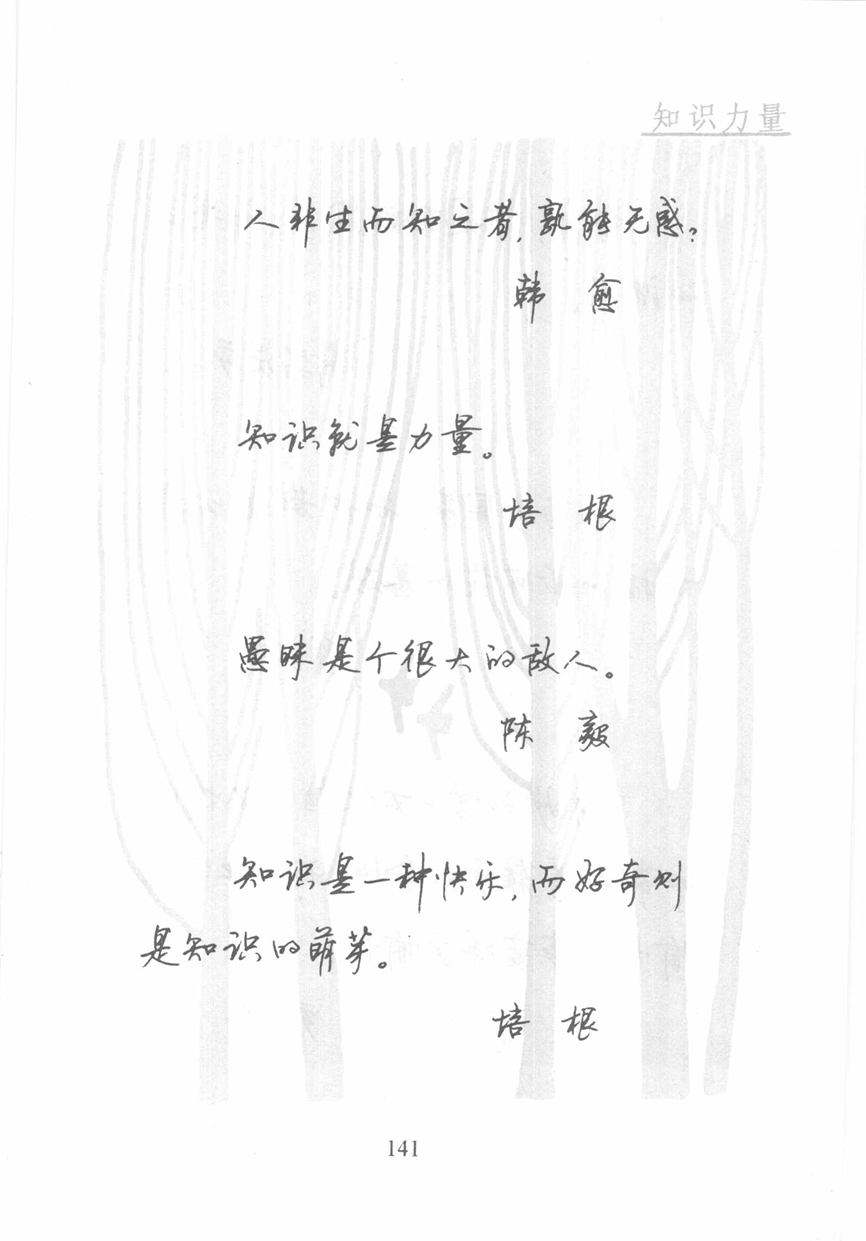 知识力量
人非生而知之者，孰能无惑？
韩 愈
知识就是力量。
培 根
愚昧是个很大的敌人。
陈 毅
知识是一种快乐，而好奇则
是知识的萌芽。
培 根
141